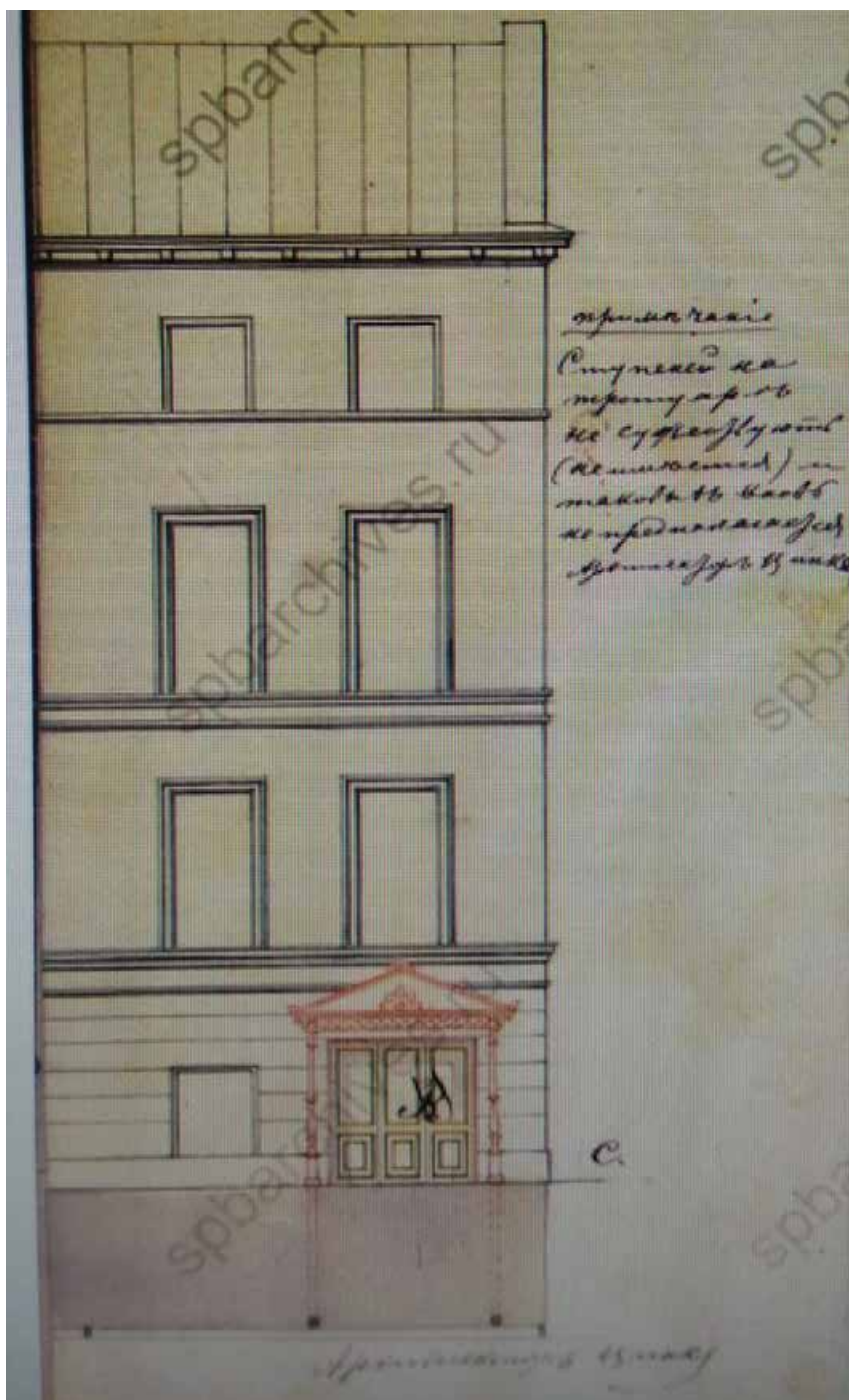 spbarchives.ru
примѣчанiе
Ступеней на
тротуарѣ
не существуютъ
(не имѣется) и
таковыхъ вновь
не предполагается
Архитекторъ
С.
Архитекторъ